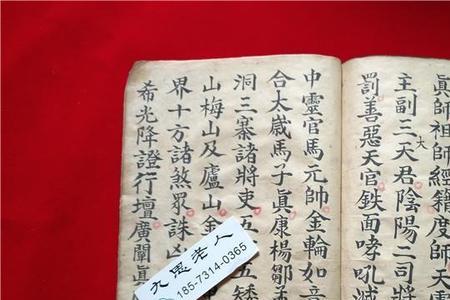 眞師祖師經籍度師
主副三天君陰陽二司將
大
罰善惡天官鉄面哮吼滅
中靈官馬元帥金輪如
合太歲馬子眞康楊鄒
洞三寨諸將吏五
五矮
山梅山及廬山金
界十方諸煞眾誅凶
希光降證行壇廣闡眞
愚老人
185-7314-0365